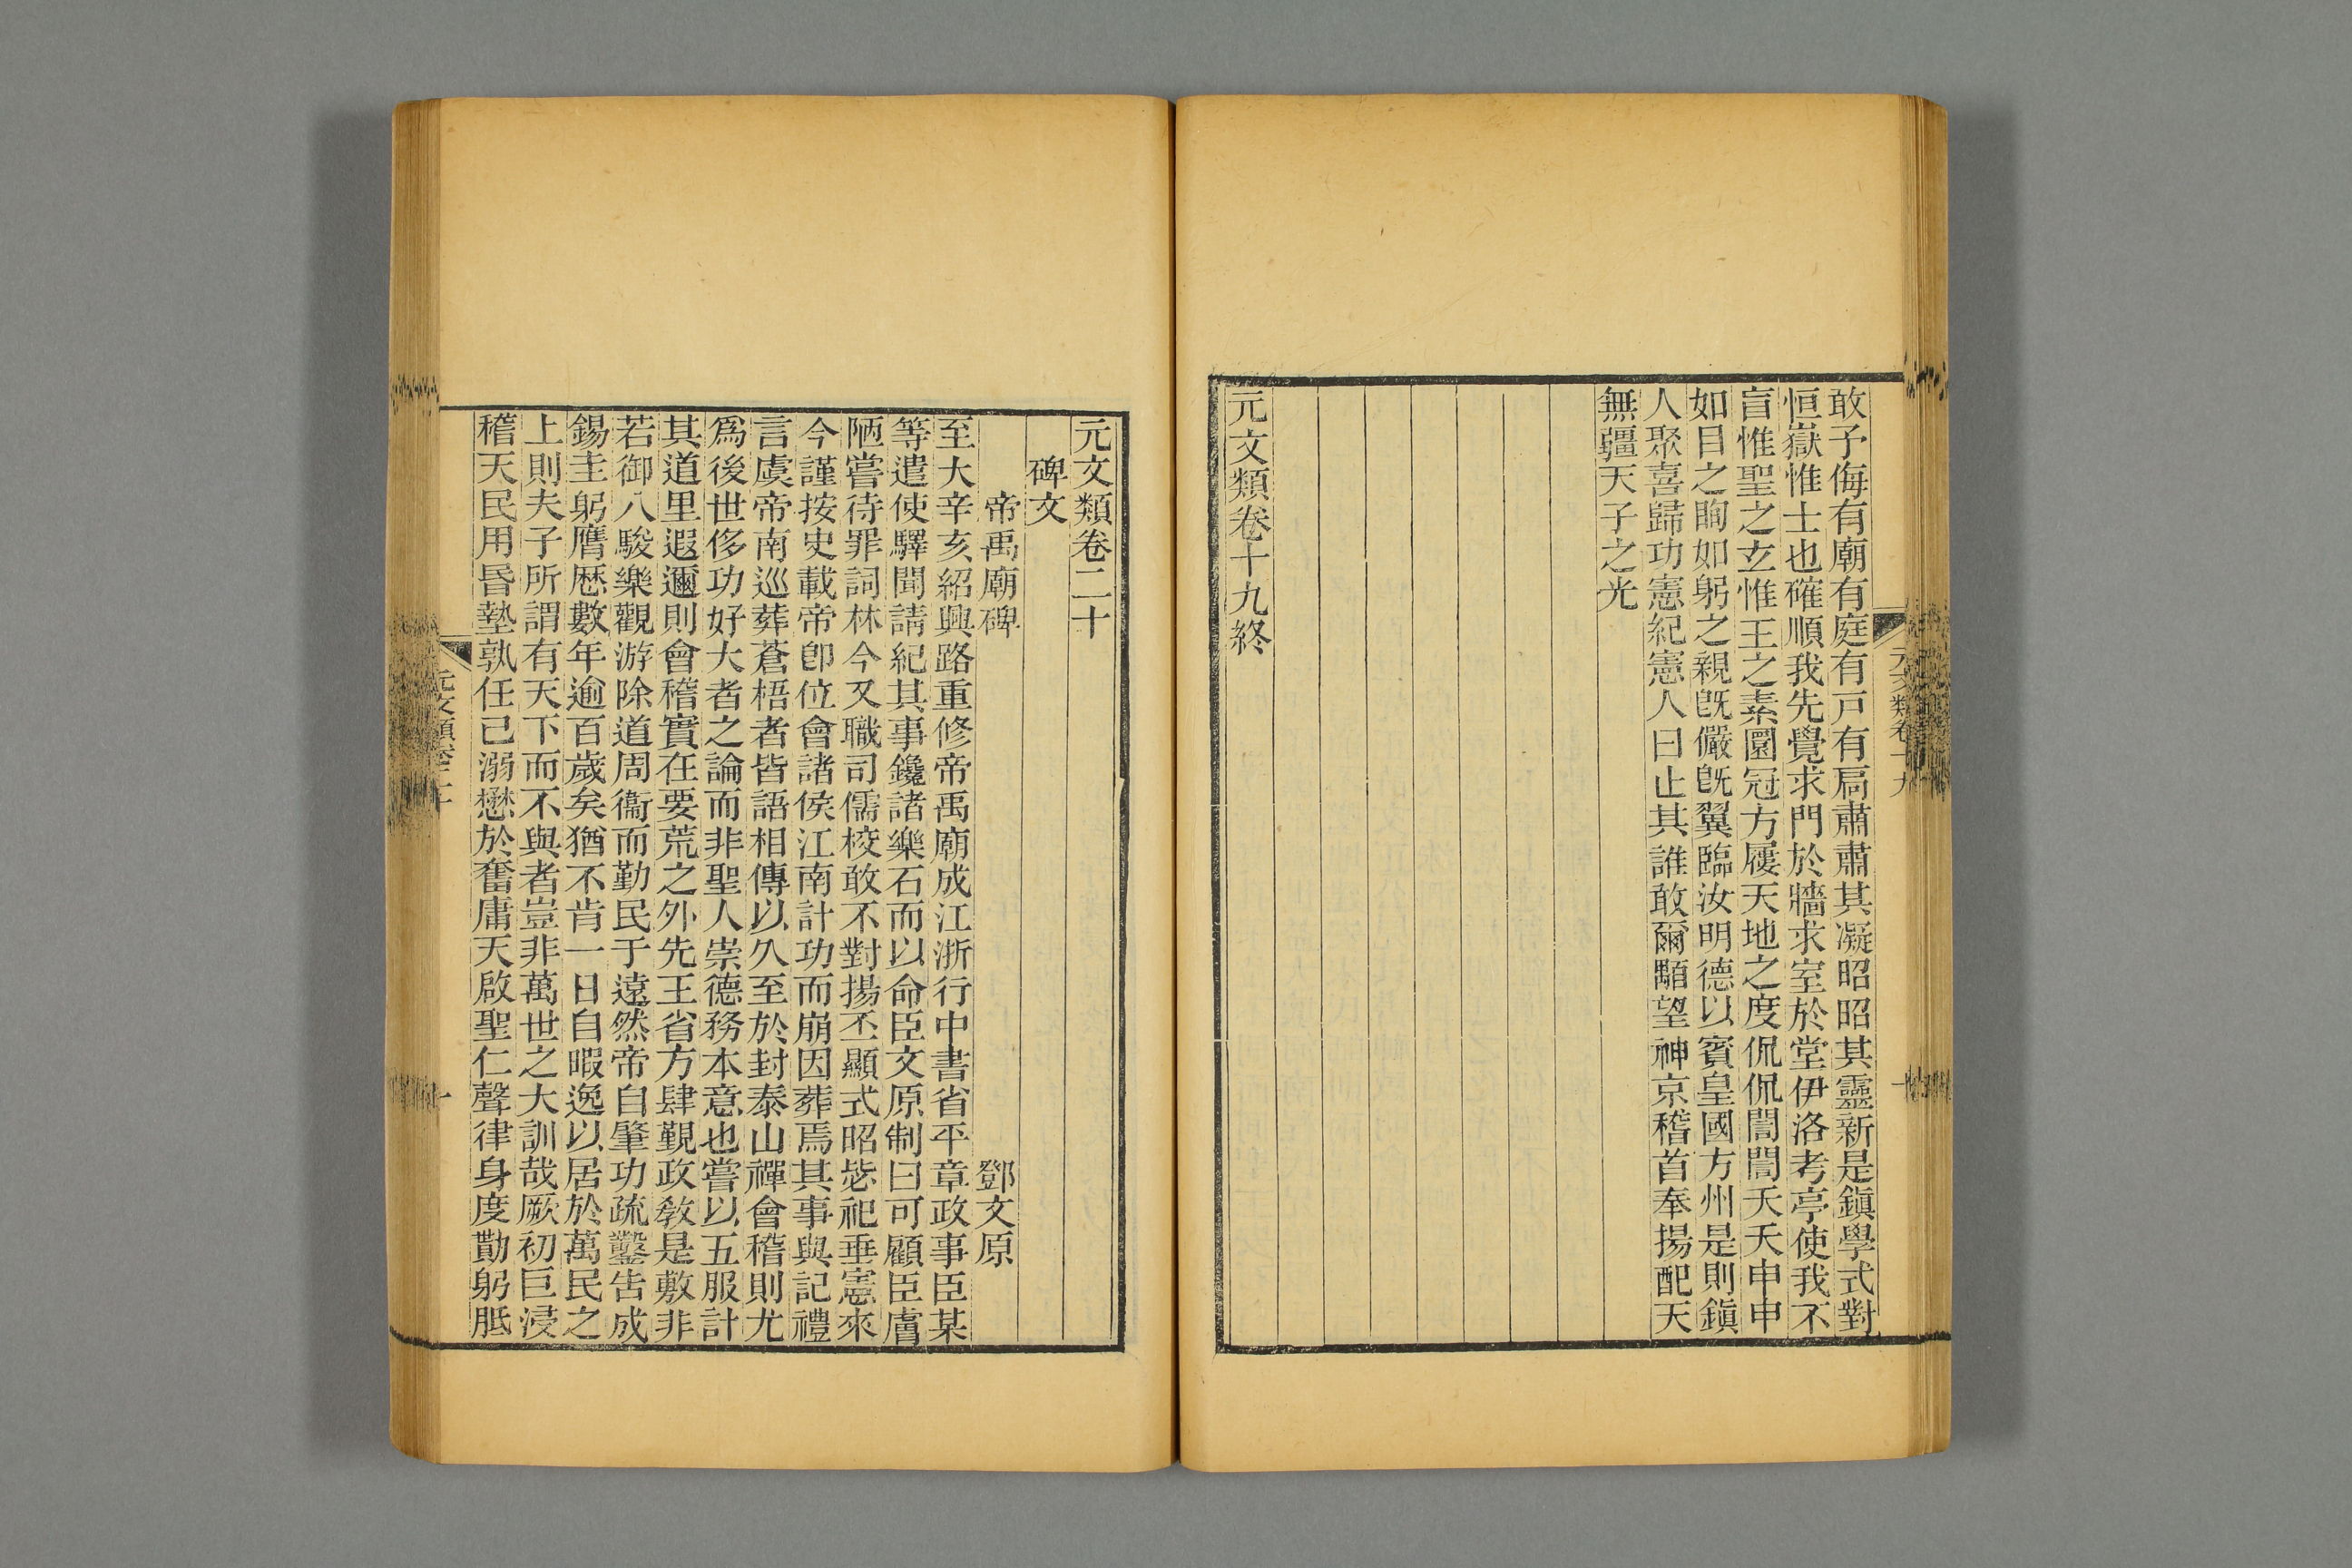 元文類卷十九
敢予侮有廟有庭有戸有扄肅肅其凝昭昭其靈新是鎭學式對
恒嶽惟士也確順我先覺求門於牆求室於堂伊洛考亭使我不
盲惟聖之玄惟王之素圜冠方屨天地之度侃侃誾誾夭夭申申
如目之眴如躬之親旣儼旣翼臨汝明德以賓皇國方州是則鎭
人聚喜歸功憲紀憲人曰止其誰敢爾顒望神京稽首奉揚配天
無疆天子之光
元文類卷十九終
元文類卷二十
碑文
帝禹廟碑 鄧文原
至大辛亥紹興路重修帝禹廟成江浙行中書省平章政事臣某
等遣使驛聞請紀其事鑱諸樂石而以命臣文原制曰可顧臣膚
陋嘗待罪詞林今又職司儒校敢不對揚丕顯式昭毖祀垂憲來
今謹按史載帝卽位會諸侯江南計功而崩因葬焉其事與記禮
言虞帝南巡葬蒼梧者皆語相傳以久至於封泰山禪會稽則尤
爲後世侈功好大者之論而非聖人崇德務本意也嘗以五服計
其道里遐邇則會稽實在要荒之外先王省方肆覲政敎是敷非
若御八駿樂觀游除道周衞而勤民于遠然帝自肇功疏鑿吿成
錫圭躬膺厯數年逾百歲矣猶不肯一日自暇逸以居於萬民之
上則夫子所謂有天下而不與者豈非萬世之大訓哉厥初巨浸
稽天民用昏墊孰任己溺懋於奮庸天啟聖仁聲律身度勩躬胝
元文類卷二十
一